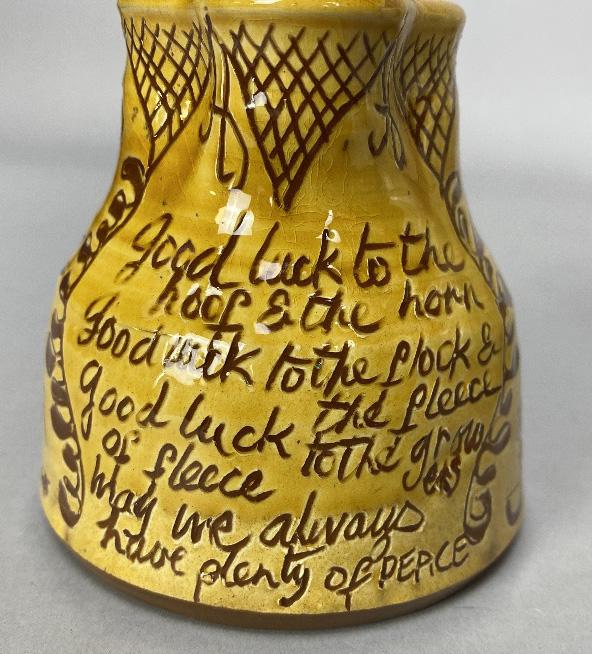 good luck to the
hoof & the horn
Good luck to the flock &
the fleece
good luck to the grow
ers
of fleece
May we always
have plenty of PEACE